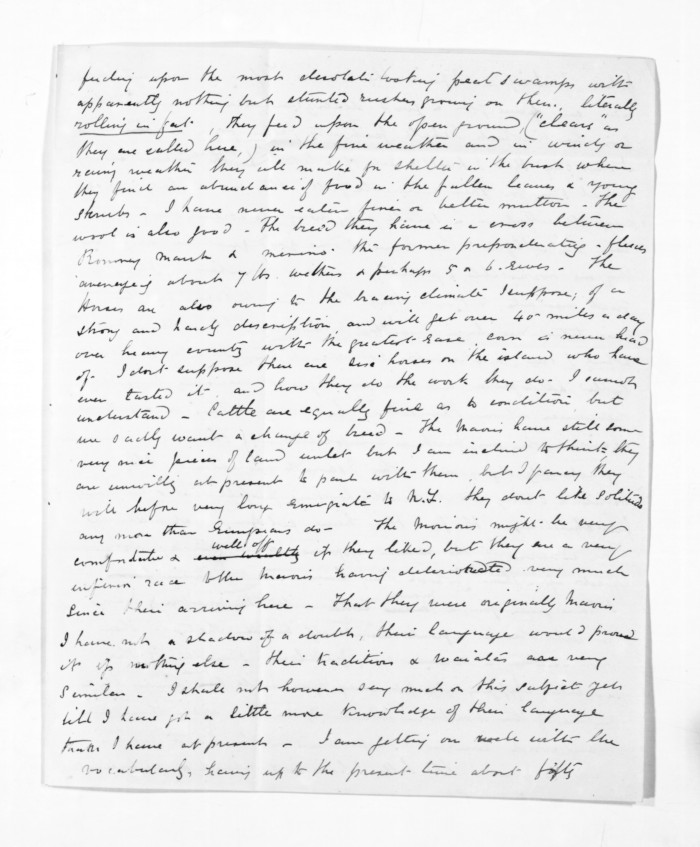 feeding upon the most desolate looking peat swamps with
apparently nothing but stunted rushes growing on them, literally
rolling in fat, they feed upon the open ground ("clears" as
they are called here,) in the fine weather and in windy or
rainy weather they all make for shelter in the bush where
they find an abundance of food in the fallen leaves & young
shrubs - I have never eaten finer or better mutton - The
wool is also good - The breed they have is a cross between
Romney marsh & merino. the former preponderating - fleeces
averaging about 7 lbs. wethers & perhaps 5 or 6. Ewes - The
Horses are also owing to the bracing climate I suppose, of a
strong and hardy description, and will get over 40 miles a day
over heavy country with the greatest ease, corn is never heard
of. I don't suppose there are six horses on the island who have
ever tasted it and how they do the work they do - I cannot
understand - Cattle are equally fine as to condition but
we sadly want a change of breed - The Maoris have still some
very nice pieces of land unlet but I am inclined to think they
are unwilling at present to part with them, but I fancy they
will before very long Emigrate to N.Z. they dont like Solitude
any more than Europeans do - The Morioris might be very
comfortable & well off if they liked, but they are a very
inferior race to the Maoris having deteriorated very much
since their arriving here - That they were originally Maoris
I have not a shadow of a doubt, their language would prove
it if nothing else - their traditions & waiatas are very
similar - I shall not however say much on this subject yet
till I have got a little more knowledge of their language
than I have at present - I am getting on with the
vocabulary, having up to the present time about fifty